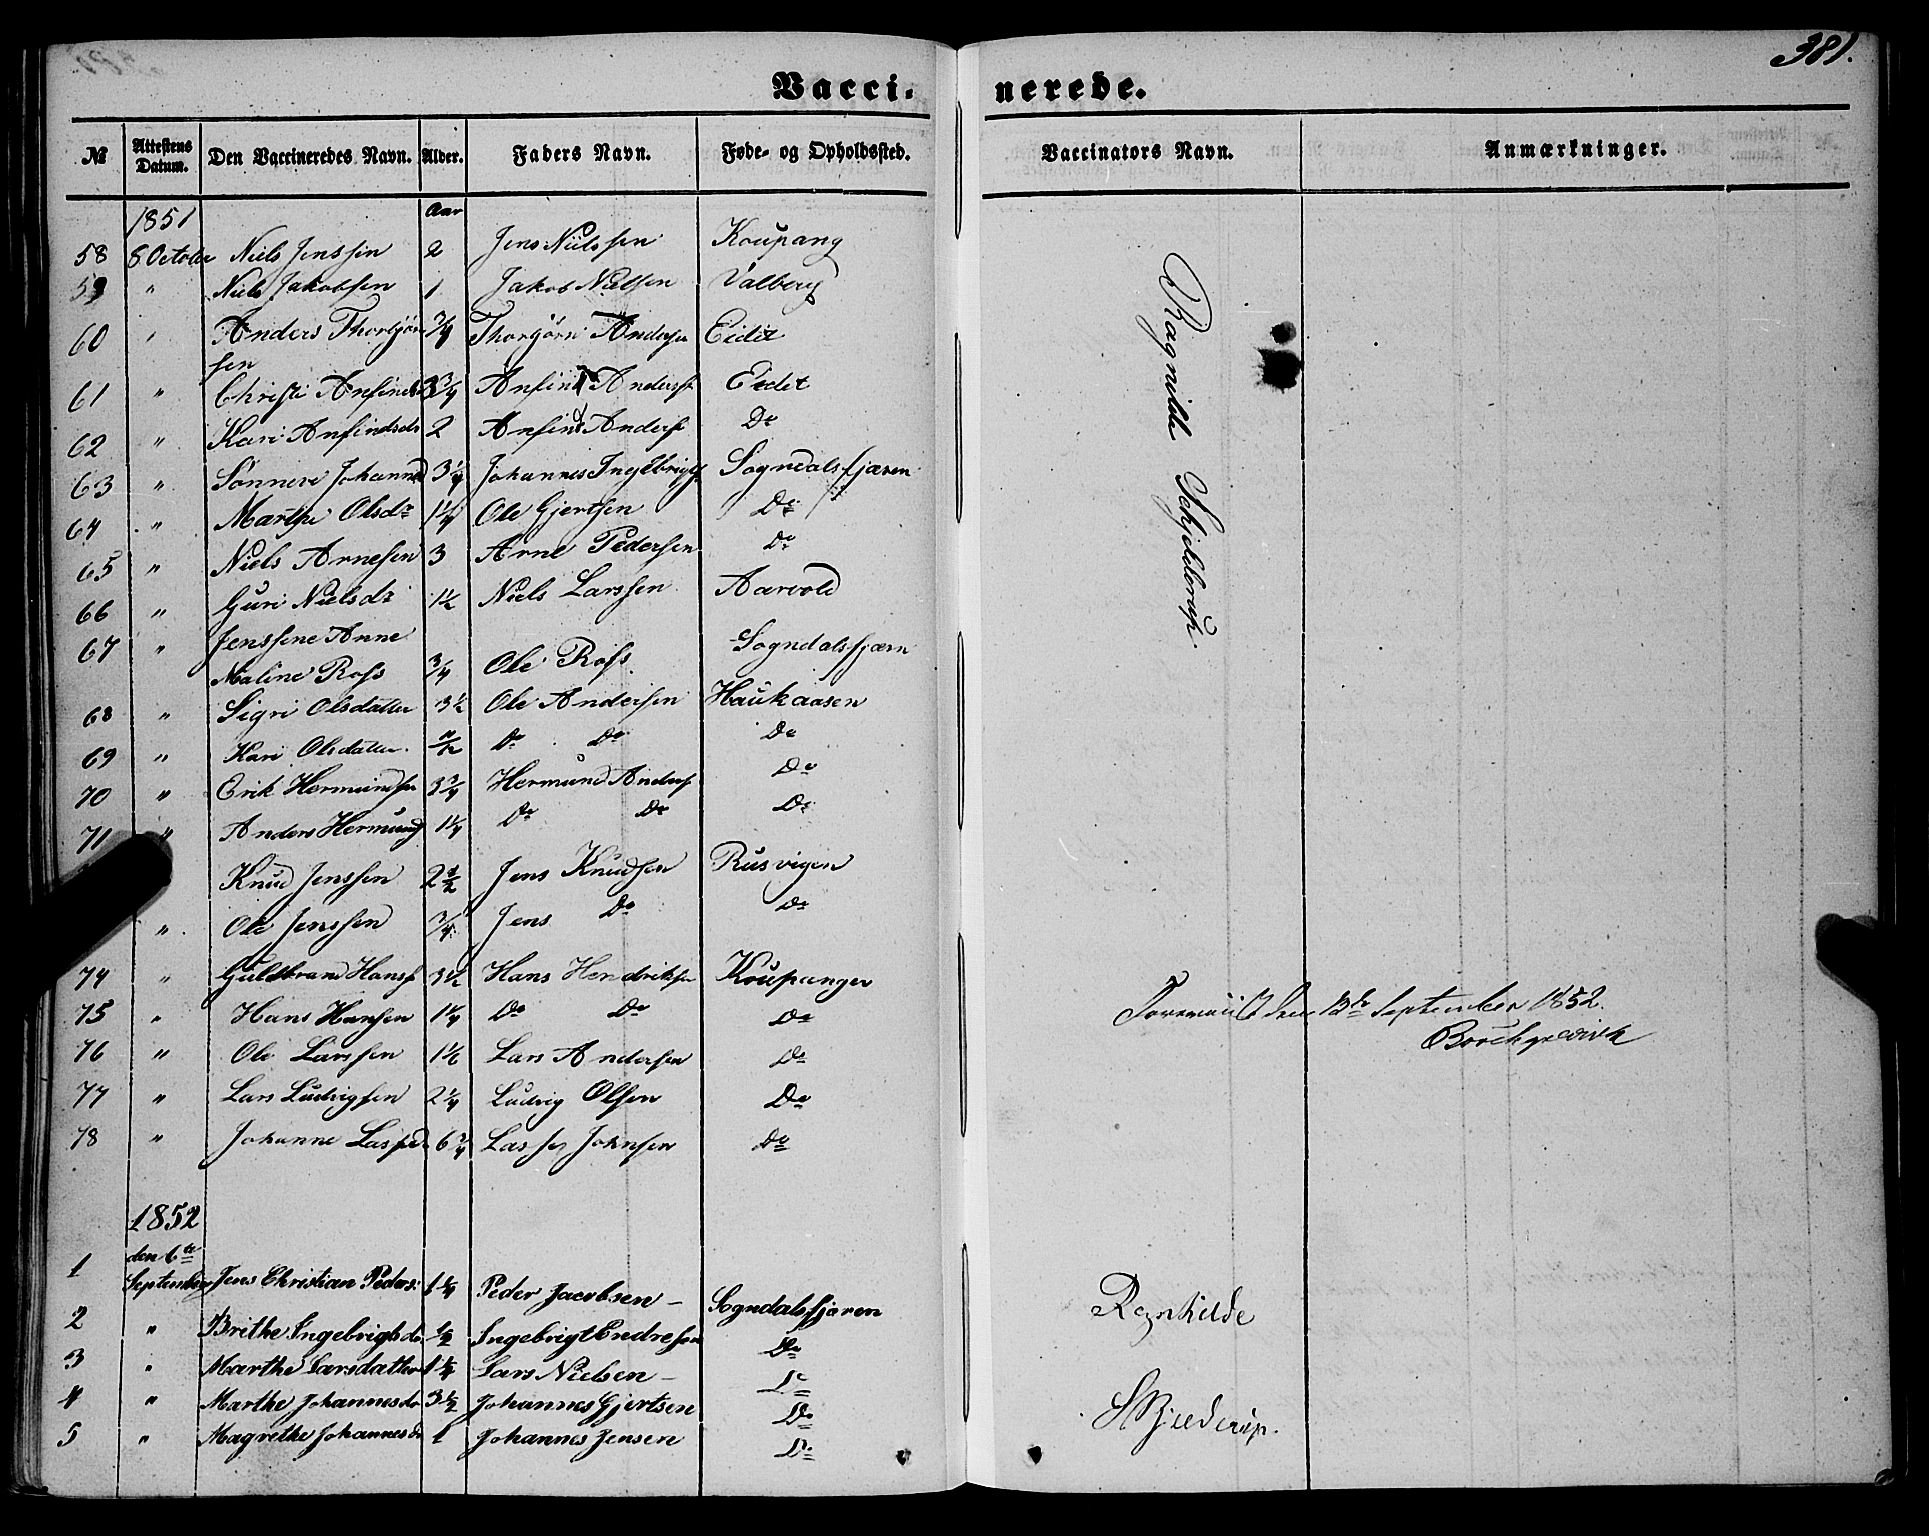 381.
Vaccinerede.
№ Attestens Datum. Den Vaccineredes Navn. Alder. Faders Navn. Føde- og Opholdssted. Vaccinators Navn. Anmærkninger.
1851 Aar
58 8 October Niels Jenssen 2 Jens Nielssen Koupang
59 " Niels Jakobsen 1 Jakob Nielsen Valberg
60 " Anders Thorbjørn 3/4 Thorbjørn Andersen Eidet
sen
61 " Christi Anfinds 3 3/4 Anfind Anderss. Eidet
62 " Kari Anfindsdr 2 Anfind Anders. Do
63 " Sønneve Johannes 3 1/4 Johannes Ingebrigts. Sogndalsfjæren
64 " Marthe Olsdr 1 1/4 Ole Gjertsen Do
65 " Niels Arnesen 3 Arne Pedersen Do
66 " Guri Nielsdr 1 1/2 Niels Larssen Aarvold
67 " Jenssene Anne
Maline Ross 3/4 Ole Ross. Sogndalsfjærn
68 " Sigri Olsdatter 3 1/2 Ole Andersen Haukaasen
69 " Kari Olsdatter Do Do Do
70 " Erik Hermundsen 3 3/4 Hermund Anders. Do
71 " Anders Hermunds 1 1/4 Do Do Do
Knud Jenssen 2 1/2 Jens Knudsen Rusvigen
" Ole Jenssen 3/4 Jens Do Do
74 " Guldbrand Hanss. 3 1/2 Hans Hendriksen Koupanger
75 " Hans Hansen 1 1/4 Do Do Do
76 " Ole Larssen 1 1/2 Lars Andersen Do
77 " Lars Ludvigsen 2 1/4 Ludvig Olsen Do
78 " Johanne Lassed. 6 3/4 Lasse Johnsen Do
Ragnilde Schjelderup.
Foreviist den 13de September 1852.
Borchgrevink
1852
1 den 6te
September Jens Christian Peders: 1 1/4 Peder Jacobsen – Sogndalsfjæren
2 " Brithe Ingebrigtsdr 1/2 Ingebrigt Endresen Do
3 " Marthe Larsdatter 1 1/4 Lars Nielsen – Do
4 " Marthe Johannesdr 3 1/2 Johannes Gjertsen Do
5 " Magrethe Johannesdr 1 Johannes Jensen Do
Regnhilde
Skjelderup.